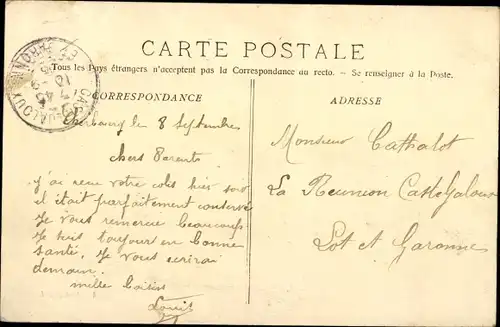 CARTE POSTALE
Tous les Pays étrangers n'acceptent pas la Correspondance au recto. — Se renseigner à la Poste.
CORRESPONDANCE
ADRESSE
Cherbourg le 8 Septembre
Chers Parents
j'ai reçu votre colis hier soir
il était parfaitement conservé
Je vous remercie beaucoup
Je suis toujours en bonne
santé, Je vous écrirai
demain.
mille baisers
Louis
Monsieur Cathalot
La Reunion CastelJaloux
Lot et Garonne